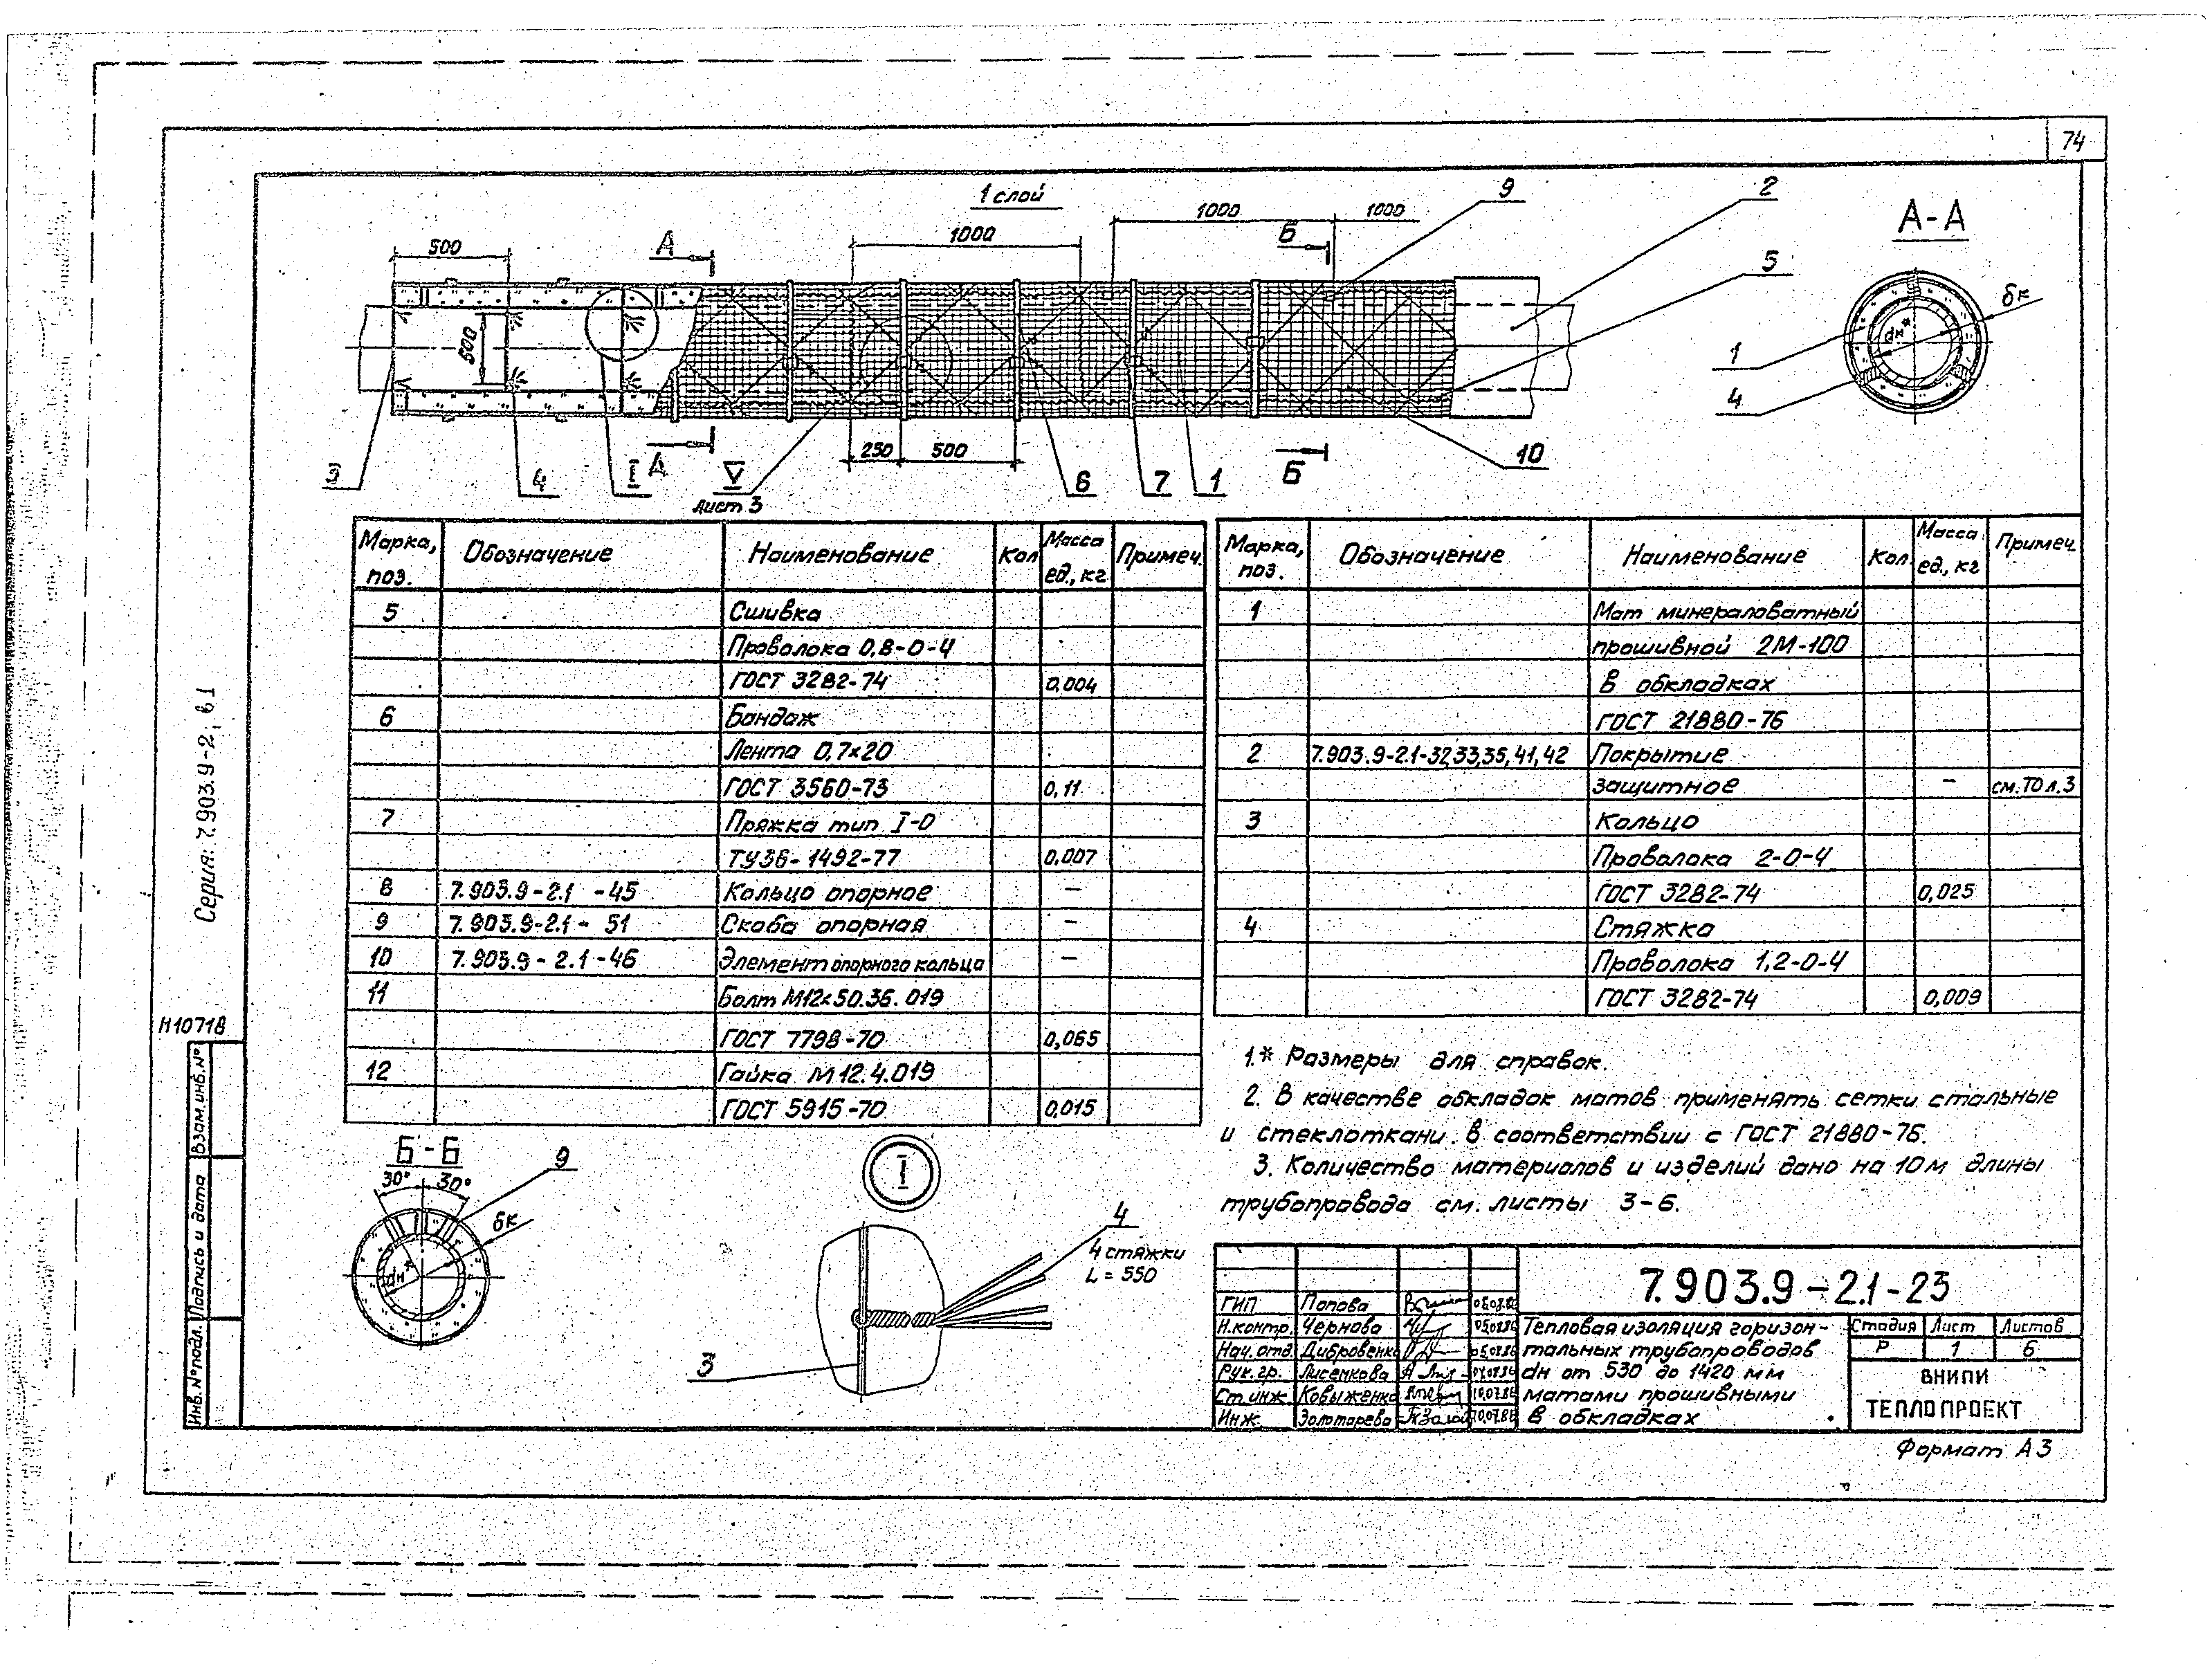 74
1 слой
500
А
1000
1000
1000
Б
9
2
5
А-А
500
бк
dн*
1
4
3
4
I
А
V
лист 3
250
500
6
7
1
Б
10
Марка, поз. Обозначение Наименование Кол Масса ед., кг Примеч.
5 Сшивка
Проволока 0,8-0-Ч
ГОСТ 3282-74 0,004
6 Бандаж
Лента 0,7×20
ГОСТ 3560-73 0,11
7 Пряжка тип I-0
ТУ36-1492-77 0,007
8 7.903.9-2.1 -45 Кольцо опорное –
9 7.903.9-2.1- 51 Скоба опорная –
10 7.903.9-2.1-46 Элемент опорного кольца –
11 Болт М12×50.36.019
ГОСТ 7798-70 0,065
12 Гайка М12.4.019
ГОСТ 5915-70 0,015
Марка, поз. Обозначение Наименование Кол. Масса ед., кг Примеч.
1 Мат минераловатный
прошивной 2М-100
в обкладках
ГОСТ 21880-76
2 7.903.9-2.1-32,33,35,41,42 Покрытие
защитное – см. ТО л.3
3 Кольцо
Проволока 2-0-Ч
ГОСТ 3282-74 0,025
4 Стяжка
Проволока 1,2-0-Ч
ГОСТ 3282-74 0,009
1.* Размеры для справок.
2. В качестве обкладок матов применять сетки стальные
и стеклоткани в соответствии с ГОСТ 21880-76.
3. Количество материалов и изделий дано на 10м длины
трубопровода см. листы 3-6.
Б-Б
30° 30°
9
бк
dн*
I
4
4 стяжки
L = 550
3
7.903.9-2.1-23
ГИП Попова
Н.контр. Чернова
Нач. отд. Дибровенко
Рук. гр. Лисенкова
Ст. инж. Ковыженко
Инж. Золотарева
Тепловая изоляция горизон-
тальных трубопроводов
dн от 530 до 1420 мм
матами прошивными
в обкладках
Стадия Лист Листов
Р 1 6
ВНИПИ
ТЕПЛОПРОЕКТ
Формат А3
Серия: 7.903.9-2, в.1
Н10718
Взам. инв. №
Подпись и дата
Инв. № подл.